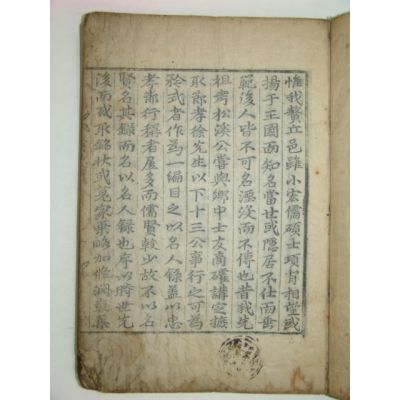 惟我贅丘邑雖小宏儒碩士項背相望或
揚于王國而知名當世或隱居不仕而垂
範後人皆不可名湮沒而不傳也昔我先
祖考松溪公嘗與鄕中士友商確講定據
取節孝徐先生以下十三公事行之可爲
矜式者作爲一編目之以名人錄盖以忠
孝節行稱者居多而儒賢較少故不以名
賢名其錄而名以名人錄也序以時世先
後而或取銘狀或蒐家乘略加